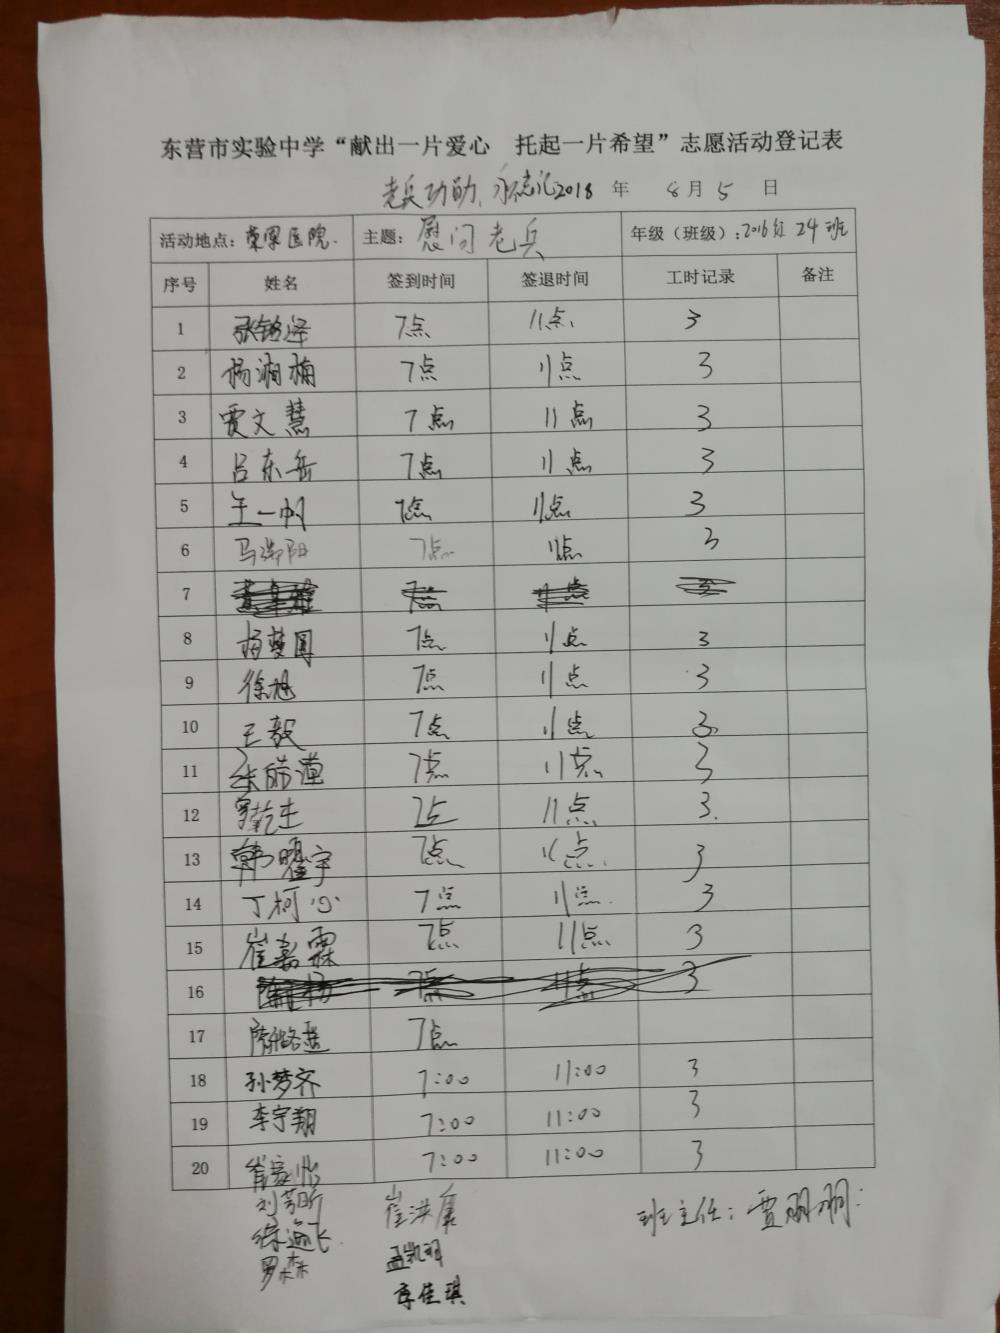 东营市实验中学“献出一片爱心 托起一片希望”志愿活动登记表
老兵功勋、永志 2018 年 8月5 日
活动地点：荣军医院. 主题：慰问老兵 年级（班级）：2016级 24班
序号 姓名 签到时间 签退时间 工时记录 备注
1 张铭泽 7点 11点 3
2 杨湘楠 7点 11点 3
3 贾文慧 7点 11点 3
4 吕东岳 7点 11点 3
5 王一帆 7点 11点 3
6 马瑞阳 7点 11点 3
7 7点 11点 3
8 杨梦圆 7点 11点 3
9 徐旭 7点 11点 3
10 王毅 7点 11点 3
11 7点 11点 3
12 7点 11点 3.
13 韩曜宇 7点 11点 3
14 丁柯心 7点 11点 3
15 崔嘉霖 7点 11点 3
16 7点 11点 3
17 7点
18 孙梦齐 7:00 11:00 3
19 李宇翔 7:00 11:00 3
20 7:00 11:00 3
刘芳昕 崔洪康 班主任：贾朋朋
徐逸飞 孟凯明
罗森 李佳琪